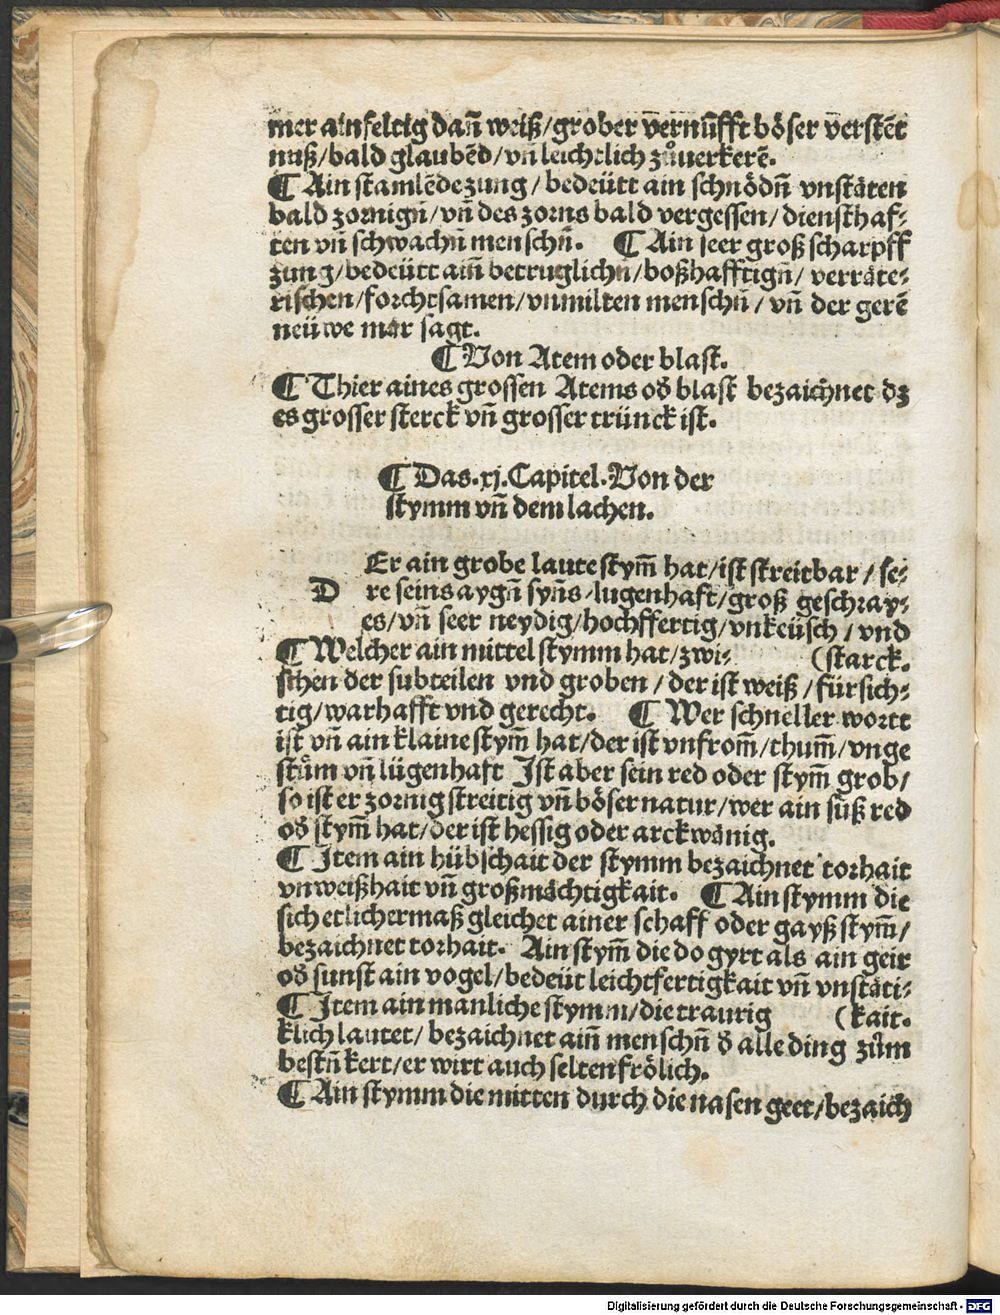 mer ainfeltig dañ weiß/grober vernūfft böser verstēt
nuß/bald glaubēd/vñ leichtlich zůuerkerē.
¶ Ain stamlēde zung/bedeütt ain schnödñ vnstäten
bald zornigñ/vñ des zorns bald vergessen/diensthaf⸗
ten vñ schwachñ menschñ. ¶ Ain seer groß scharpff
zung/bedeütt ainñ betruglichñ/boßhafftigñ/verräte⸗
rischen/forchtsamen/vnmilten menschñ/vñ der gerē
neüwe mär sagt.
¶ Von Atem oder blast.
¶ Thier aines grossen Atems oď blast bezaichnet dz
es grosser sterck vñ grosser trünck ist.
¶ Das.xj.Capitel.Von der
stymm vñ dem lachen.
Er ain grobe laute stym̄ hat/ist streitbar/se⸗
D re seins aygñ syñs/lugenhaft/groß geschray⸗
es/vñ seer neydig/hochffertig/vnkeüsch/vnd
¶ Welcher ain mittel stymm hat/zwi⸗ (starck.
schen der subteilen vnd groben/der ist weiß/fürsich⸗
tig/warhafft vnd gerecht. ¶ Wer schneller wortt
ist vñ ain klaine stym̄ hat/der ist vnfrom̄/thum̄/vnge
stům vñ lügenhaft Ist aber sein red oder stym̄ grob/
so ist er zornig streitig vñ böser natur/wer ain süß red
oď stym̄ hat/der ist hessig oder arckwänig.
¶ Item ain hübschait der stymm bezaichnet torhait
vnweißhait vñ großmächtigkait. ¶ Ain stymm die
sich etlichermaß gleichet ainer schaff oder gayß stym̄/
bezaichnet torhait. Ain stym̄ die do gyrt als ain geir
oď sunst ain vogel/bedeüt leichtfertigkait vñ vnstäti⸗
¶ Item ain manliche stymm/die traurig (kait.
klich lautet/bezaichnet ainñ menschñ ď alle ding zům
bestñ kert/er wirt auch selten frölich.
¶ Ain stymm die mitten durch die nasen geet/bezaich
Digitalisierung gefördert durch die Deutsche Forschungsgemeinschaft - DFG